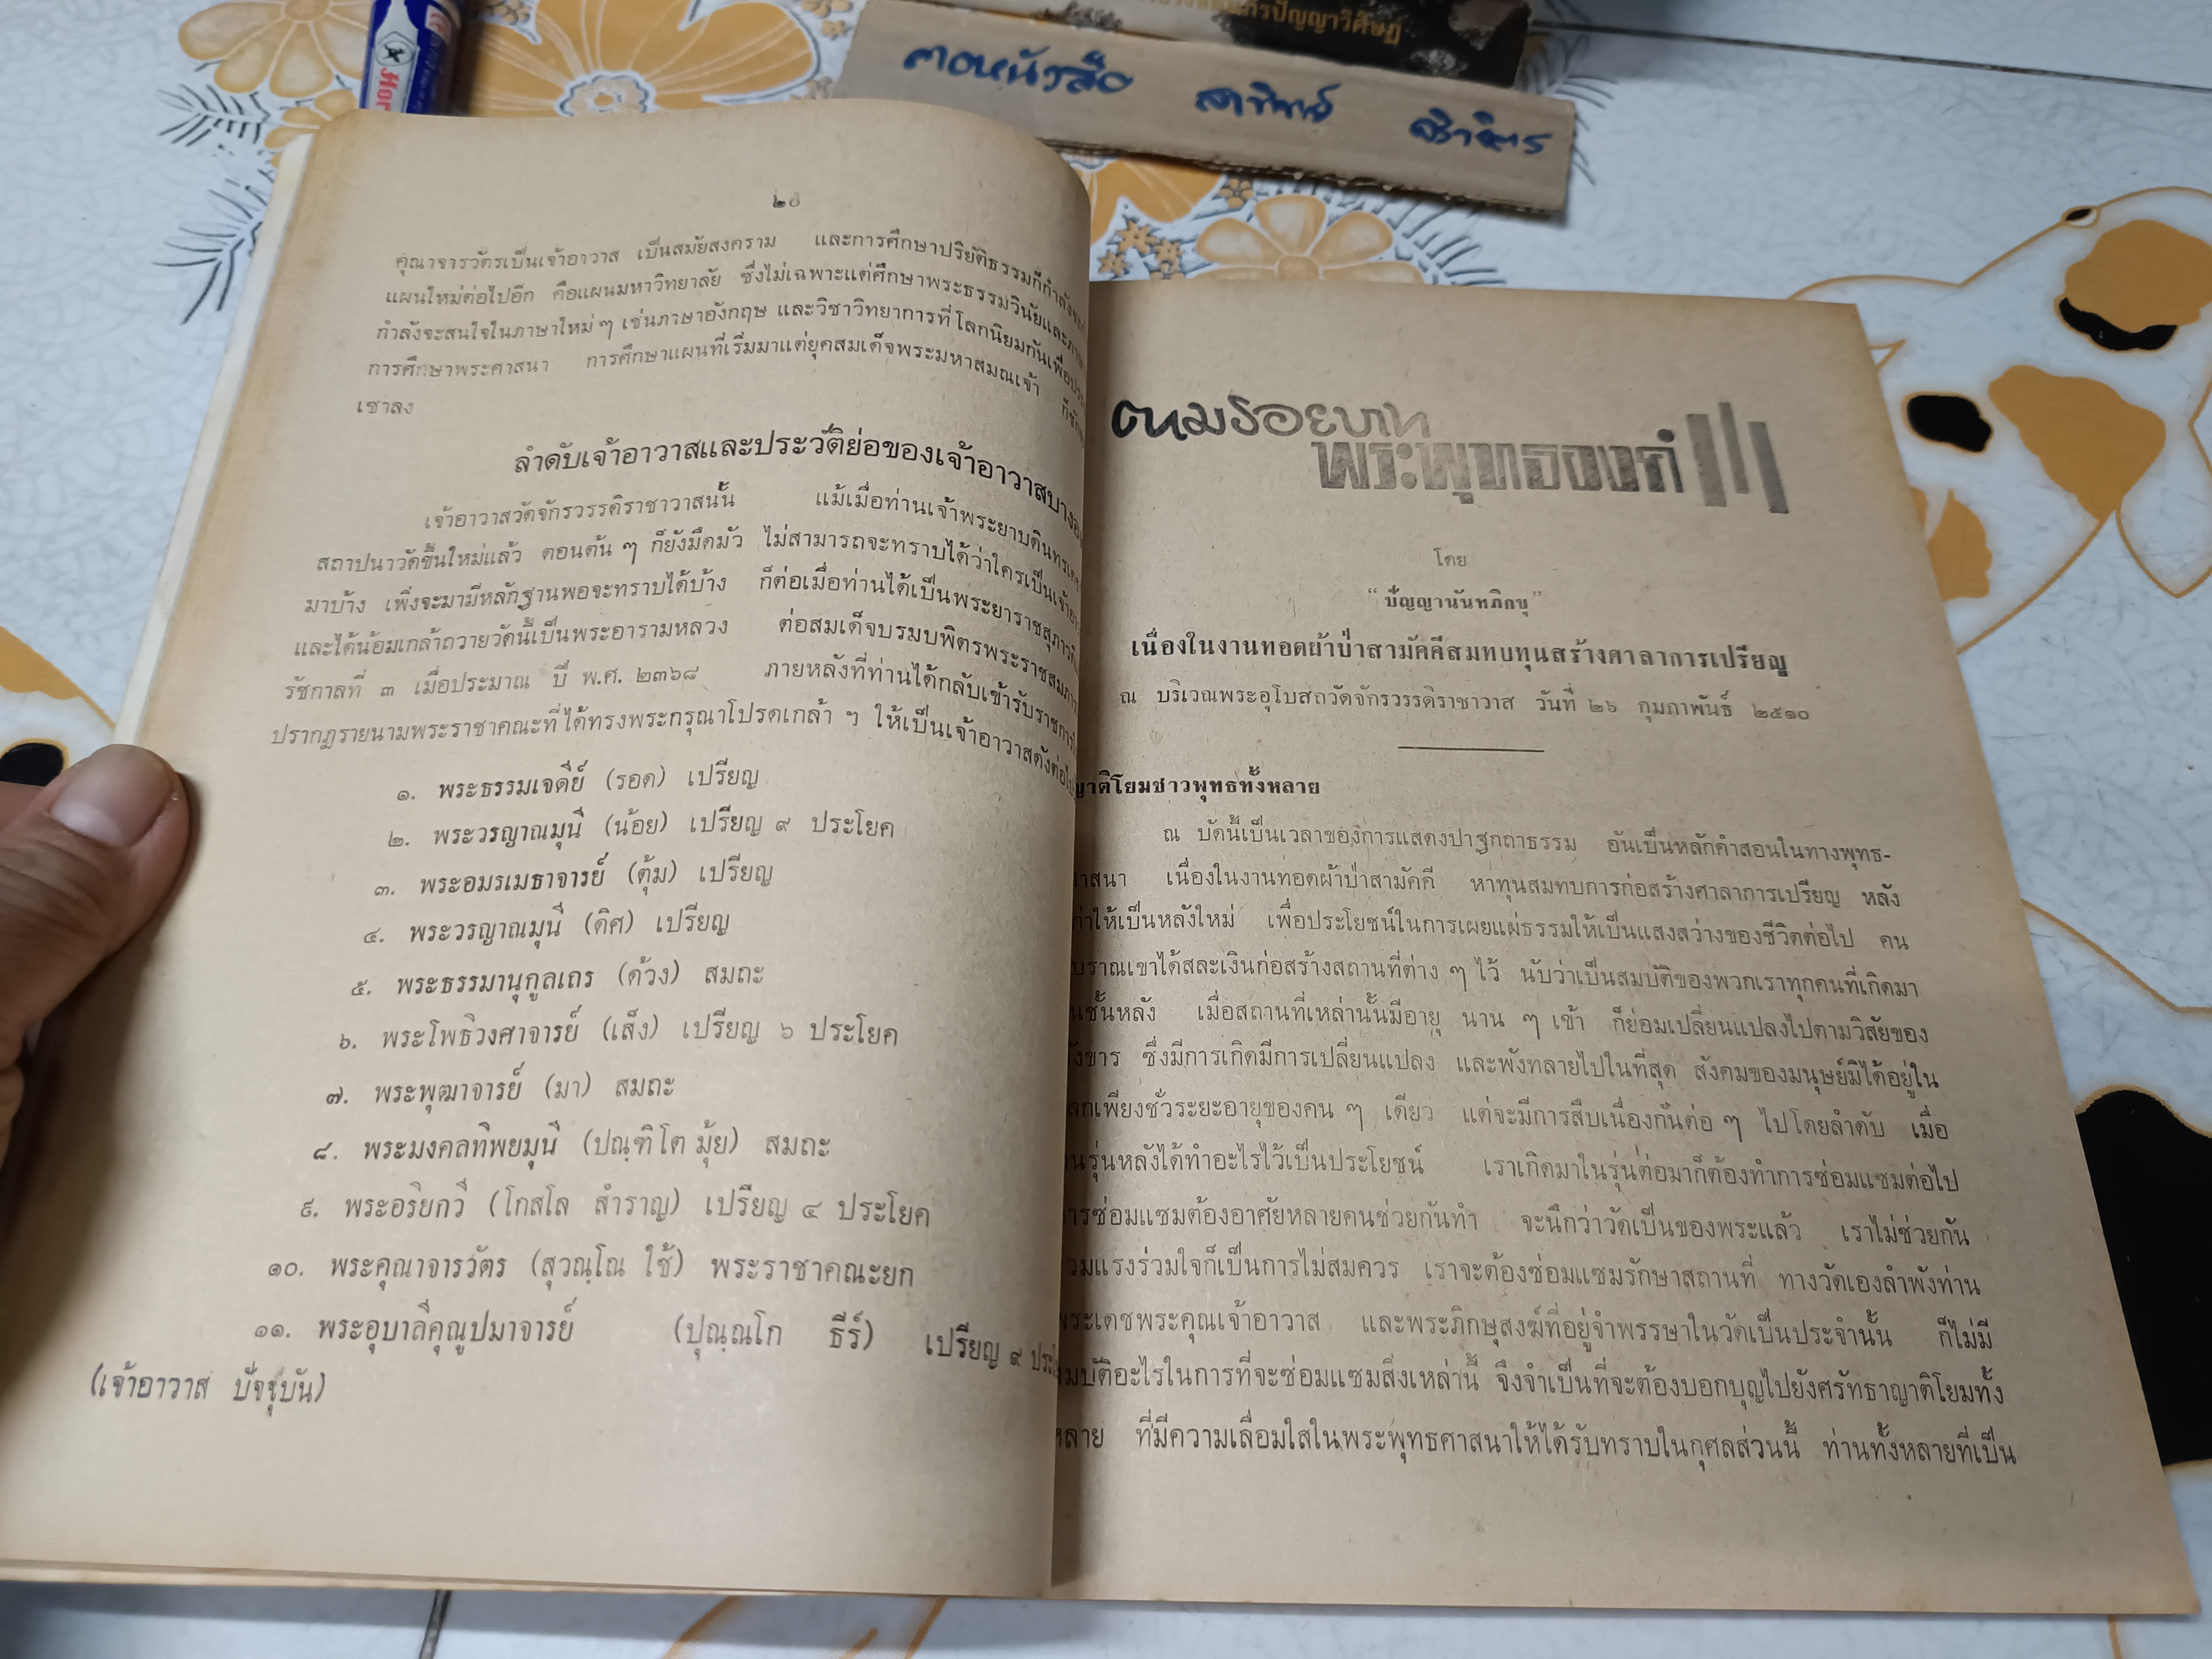 การปัญญาวิศิษฏ์
Hor
๒๘
คุณาจารวัตรเป็นเจ้าอาวาส เป็นสมัยสงคราม และการศึกษาปริยัติธรรมก็กำลังจะ
แผนใหม่ต่อไปอีก คือแผนมหาวิทยาลัย ซึ่งไม่เฉพาะแต่ศึกษาพระธรรมวินัยและภาษา
กำลังจะสนใจในภาษาใหม่ ๆ เช่นภาษาอังกฤษ และวิชาวิทยาการที่โลกนิยมกันเพื่อ
การศึกษาพระศาสนา การศึกษาแผนที่เริ่มมาแต่ยุคสมเด็จพระมหาสมณเจ้า ก็ชัก
เซาลง
ลำดับเจ้าอาวาสและประวัติย่อของเจ้าอาวาสบาง
เจ้าอาวาสวัดจักรวรรดิราชาวาสนั้น แม้เมื่อท่านเจ้าพระยาบดินทรเดชา
สถาปนาวัดขึ้นใหม่แล้ว ตอนต้น ๆ ก็ยังมืดมัว ไม่สามารถจะทราบได้ว่าใครเป็นเจ้า
มาบ้าง เพิ่งจะมามีหลักฐานพอจะทราบได้บ้าง ก็ต่อเมื่อท่านได้เป็นพระยาราชสุภาวดี
และได้น้อมเกล้าถวายวัดนี้เป็นพระอารามหลวง ต่อสมเด็จบรมบพิตรพระราชสมภาร
รัชกาลที่ ๓ เมื่อประมาณ ปี พ.ศ. ๒๓๖๘ ภายหลังที่ท่านได้กลับเข้ารับราชการ
ปรากฏรายนามพระราชาคณะที่ได้ทรงพระกรุณาโปรดเกล้า ฯ ให้เป็นเจ้าอาวาสดังต่อไป
๑. พระธรรมเจดีย์ (รอด) เปรียญ
๒. พระวรญาณมุนี (น้อย) เปรียญ ๙ ประโยค
๓. พระอมรเมธาจารย์ (ตุ้ม) เปรียญ
๔. พระวรญาณมุนี (ดิศ) เปรียญ
๕. พระธรรมานุกูลเถร (ด้วง) สมถะ
๖. พระโพธิวงศาจารย์ (เส็ง) เปรียญ ๖ ประโยค
๗. พระพุฒาจารย์ (มา) สมถะ
๘. พระมงคลทิพยมุนี (ปณฺฑิโต มุ้ย) สมถะ
๙. พระอริยกวี (โกสโล สำราญ) เปรียญ ๔ ประโยค
๑๐. พระคุณาจารวัตร (สุวณฺโณ ใช้) พระราชาคณะยก
๑๑. พระอุบาลีคุณูปมาจารย์ (ปุณฺณโก ธีร์) เปรียญ ๙
(เจ้าอาวาส ปัจจุบัน)
ตามรอยบาท
พระพุทธองค์
โดย
“ปัญญานันทภิกขุ”
เนื่องในงานทอดผ้าป่าสามัคคีสมทบทุนสร้างศาลาการเปรียญ
ณ บริเวณพระอุโบสถวัดจักรวรรดิราชาวาส วันที่ ๒๖ กุมภาพันธ์ ๒๕๑๐
ญาติโยมชาวพุทธทั้งหลาย
ณ บัดนี้เป็นเวลาของการแสดงปาฐกถาธรรม อันเป็นหลักคำสอนในทางพุทธ-
ศาสนา เนื่องในงานทอดผ้าป่าสามัคคี หาทุนสมทบการก่อสร้างศาลาการเปรียญ หลัง
เก่าให้เป็นหลังใหม่ เพื่อประโยชน์ในการเผยแผ่ธรรมให้เป็นแสงสว่างของชีวิตต่อไป คน
บราณเขาได้สละเงินก่อสร้างสถานที่ต่าง ๆ ไว้ นับว่าเป็นสมบัติของพวกเราทุกคนที่เกิดมา
นชั้นหลัง เมื่อสถานที่เหล่านั้นมีอายุ นาน ๆ เข้า ก็ย่อมเปลี่ยนแปลงไปตามวิสัยของ
ังขาร ซึ่งมีการเกิดมีการเปลี่ยนแปลง และพังทลายไปในที่สุด สังคมของมนุษย์มิได้อยู่ใน
ลกเพียงชั่วระยะอายุของคน ๆ เดียว แต่จะมีการสืบเนื่องกันต่อ ๆ ไปโดยลำดับ เมื่อ
นรุ่นหลังได้ทำอะไรไว้เป็นประโยชน์ เราเกิดมาในรุ่นต่อมาก็ต้องทำการซ่อมแซมต่อไป
ารซ่อมแซมต้องอาศัยหลายคนช่วยกันทำ จะนึกว่าวัดเป็นของพระแล้ว เราไม่ช่วยกัน
วมแรงร่วมใจก็เป็นการไม่สมควร เราจะต้องซ่อมแซมรักษาสถานที่ ทางวัดเองลำพังท่าน
พระเดชพระคุณเจ้าอาวาส และพระภิกษุสงฆ์ที่อยู่จำพรรษาในวัดเป็นประจำนั้น ก็ไม่มี
มบัติอะไรในการที่จะซ่อมแซมสิ่งเหล่านี้ จึงจำเป็นที่จะต้องบอกบุญไปยังศรัทธาญาติโยมทั้ง
หลาย ที่มีความเลื่อมใสในพระพุทธศาสนาให้ได้รับทราบในกุศลส่วนนี้ ท่านทั้งหลายที่เป็น